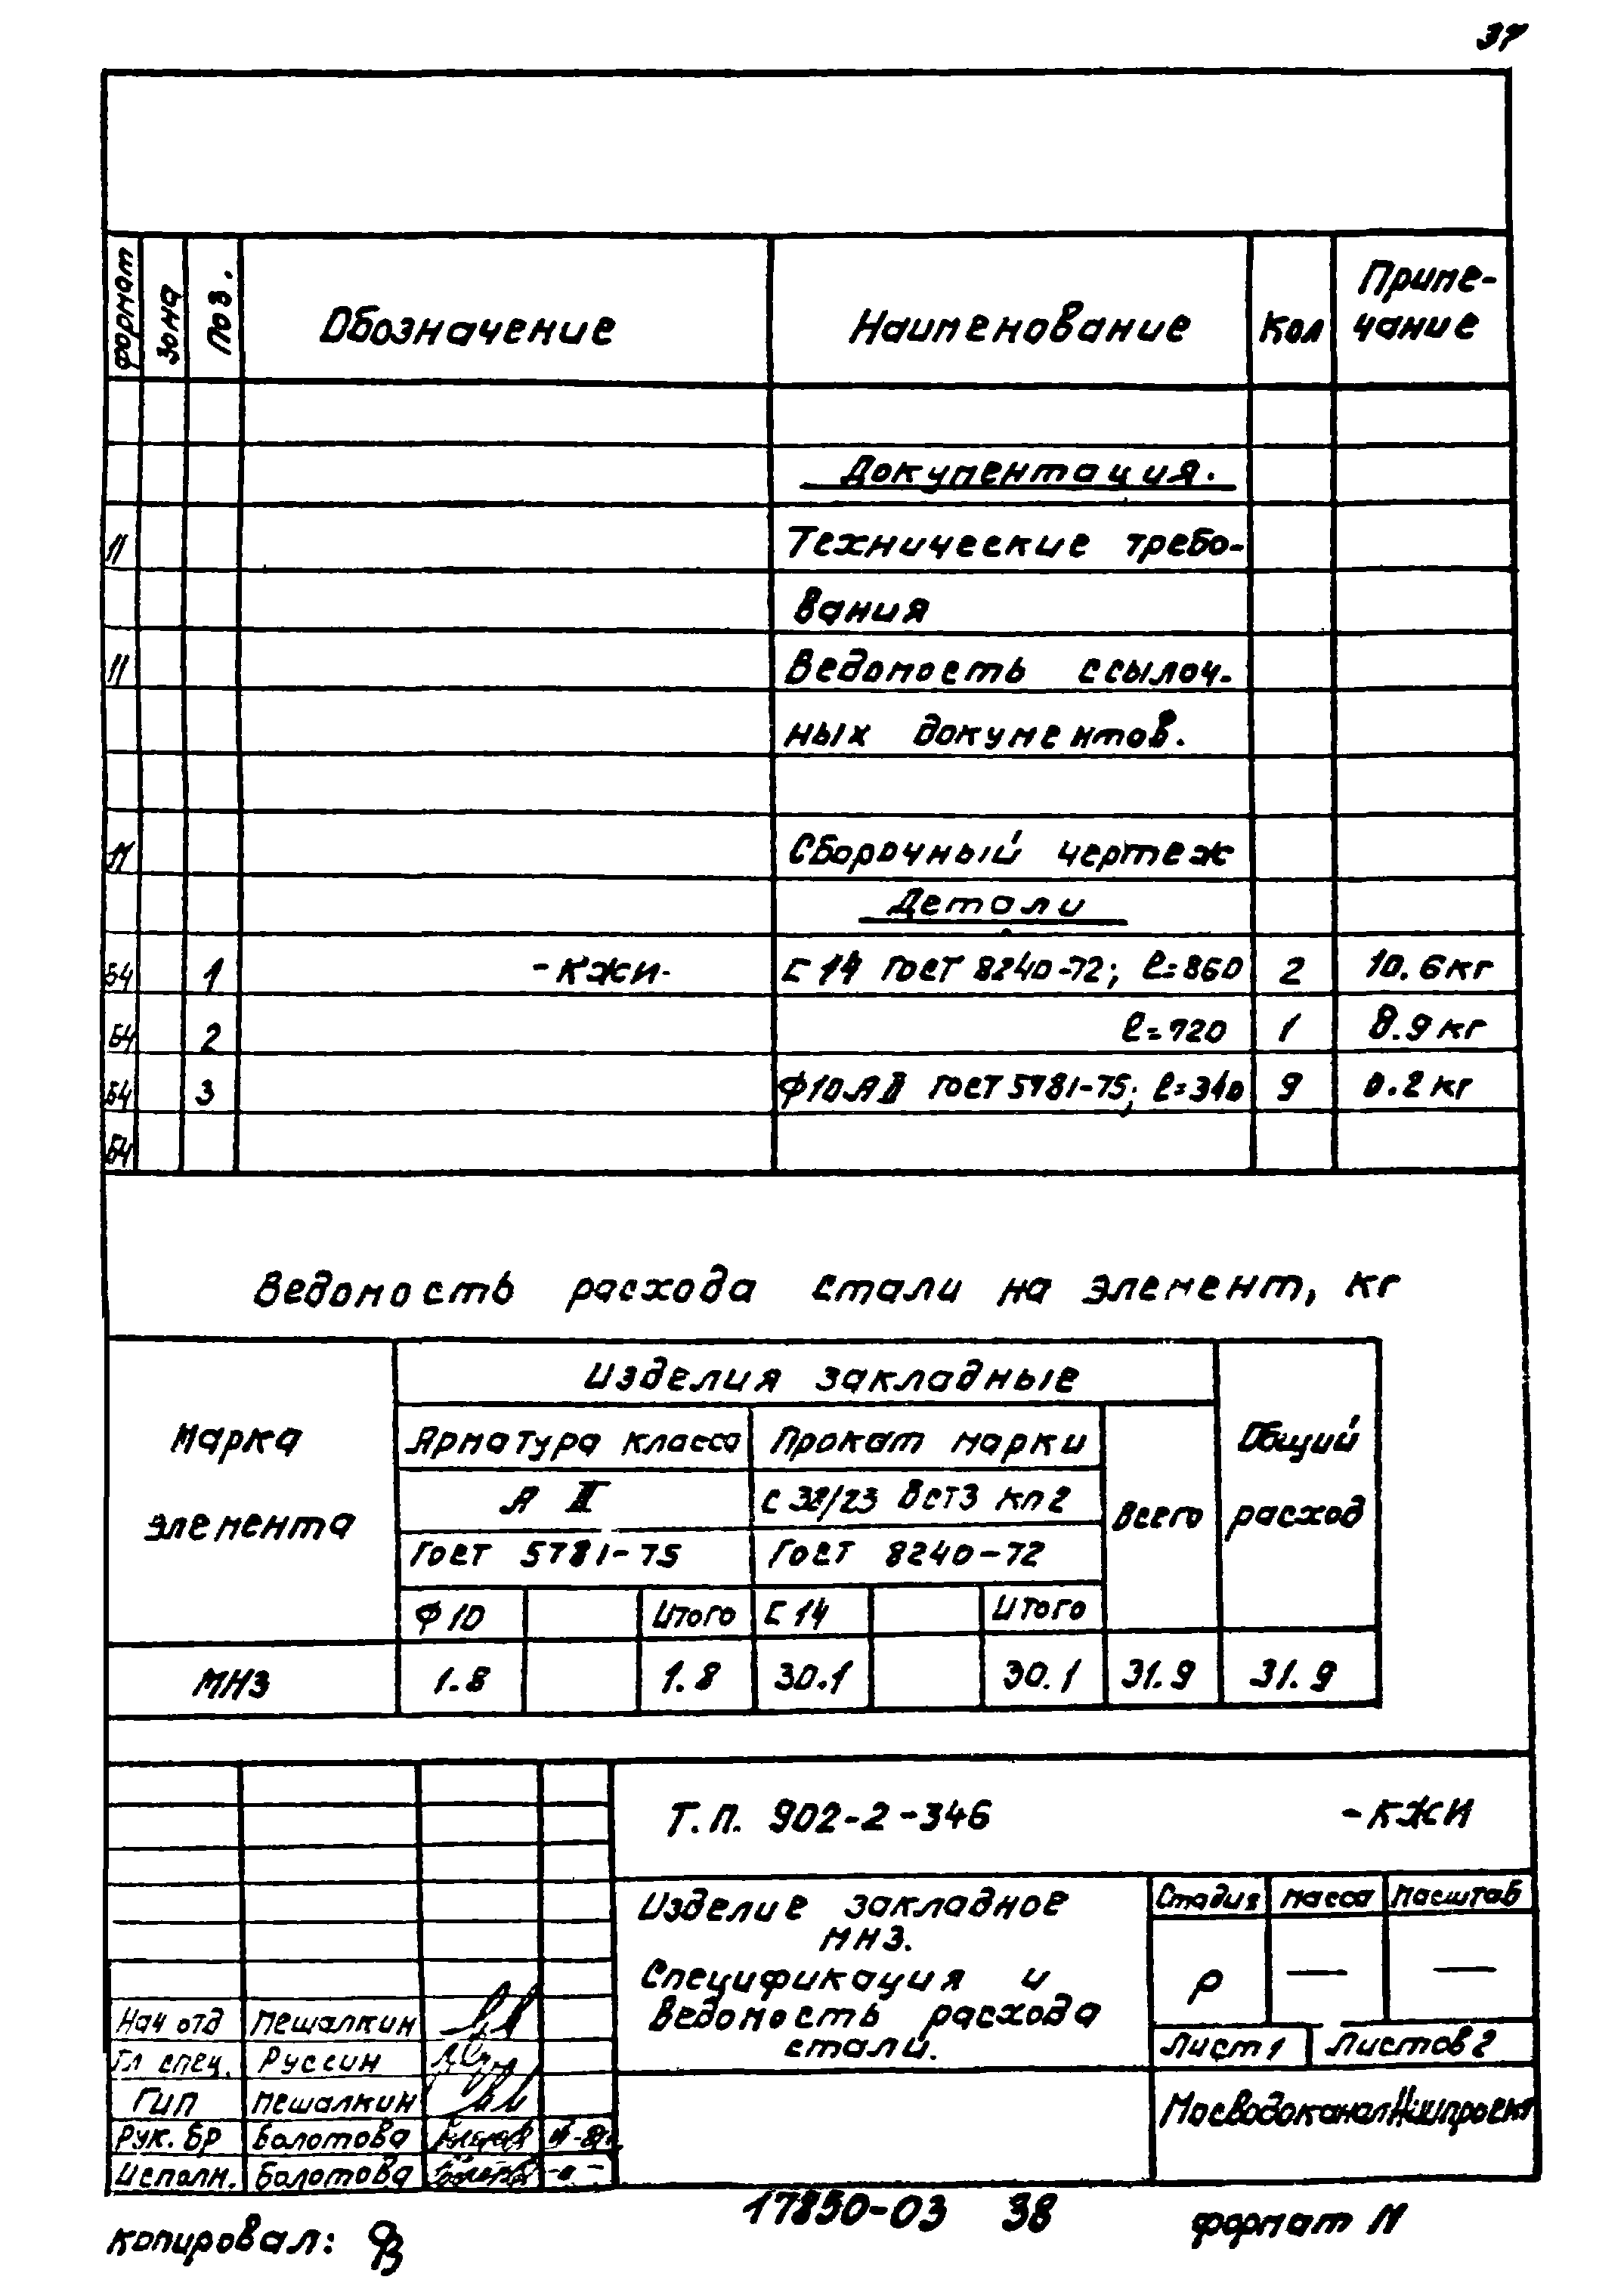 37
формат зона Поз. Обозначение Наименование Кол Приме-
чание
Документация.
11 Технические требо-
вания
11 Ведомость ссылоч-
ных документов.
11 Сборочный чертеж
Детали
Б4 1 -КЖИ- С 14 ГОСТ 8240-72; ℓ=860 2 10.6 кг
Б4 2 ℓ=720 1 8.9 кг
Б4 3 Ф10АII ГОСТ 5781-75; ℓ=310 9 0.2 кг
Б4
Ведомость расхода стали на элемент, кг
Марка элемента
Изделия закладные
Общий расход
Арматура класса Прокат марки Всего
А II С 38/23 Вст3 кп2
Гост 5781-75 Гост 8240-72
Ф 10 Итого С 14 Итого
МН3 1.8 1.8 30.1 30.1 31.9 31.9
Т.П. 902-2-346 -КЖИ
Изделие закладное
МН3.
Спецификация и
ведомость расхода
стали.
Стадия Масса Масштаб
Р — —
Лист 1 Листов 2
МосводоканалНИИпроект
Нач отд Пешалкин
Гл спец. Руссин
ГИП Пешалкин
Рук. бр Болотова
Исполн. Болотова
17850-03 38
копировал: формат 11